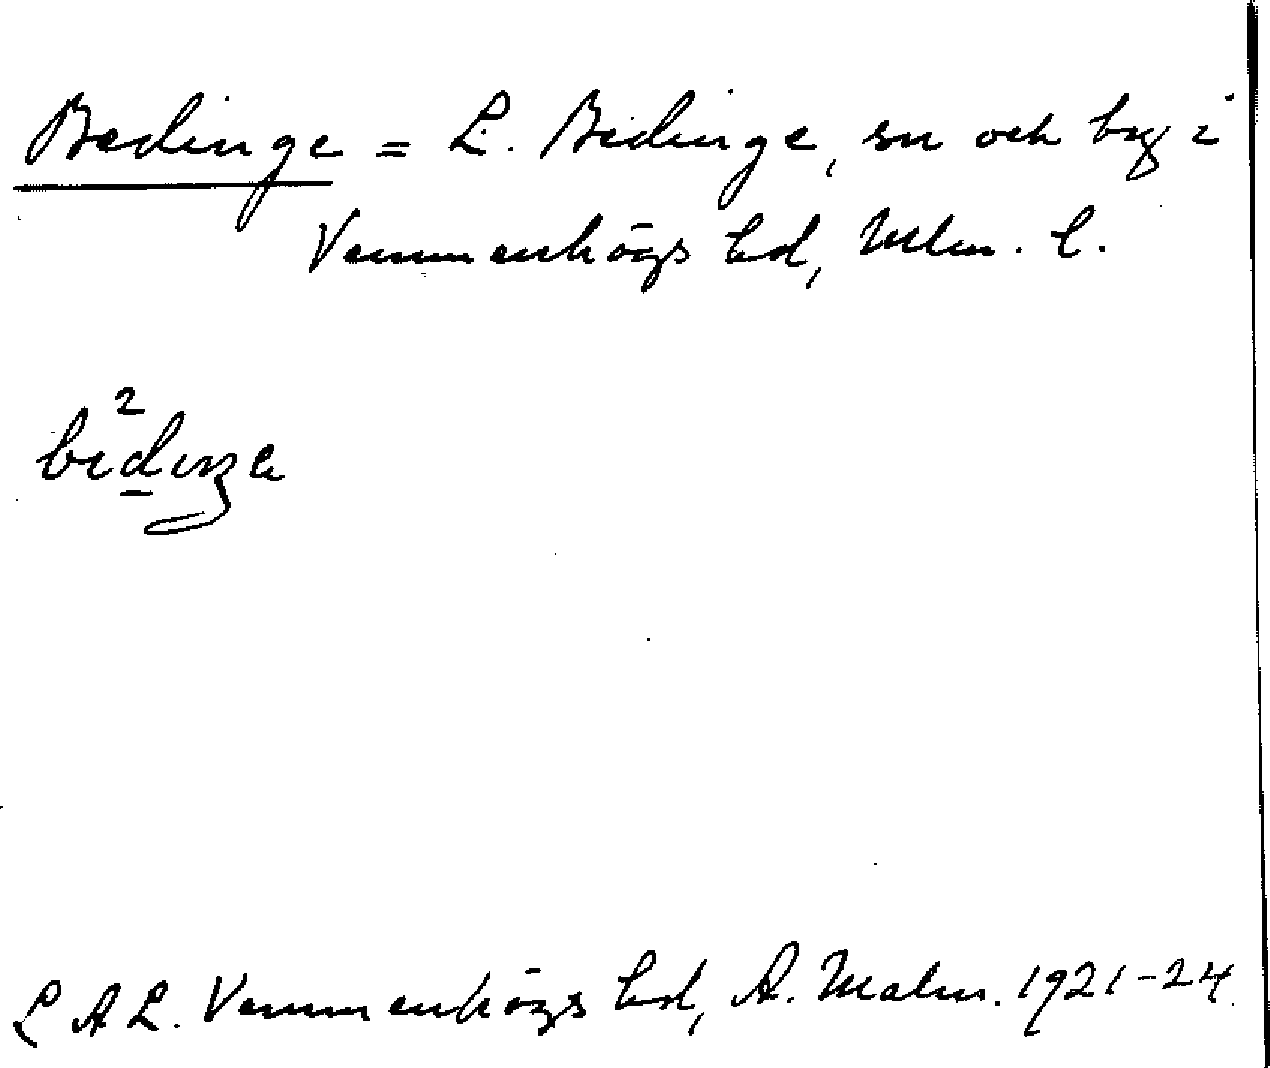 Bedinge = L. Bedinge, sn och by i
Vemmenhögs hd, Mlm. l.
LAL. Vemmenhögs hd, A. Malm. 1921-24.